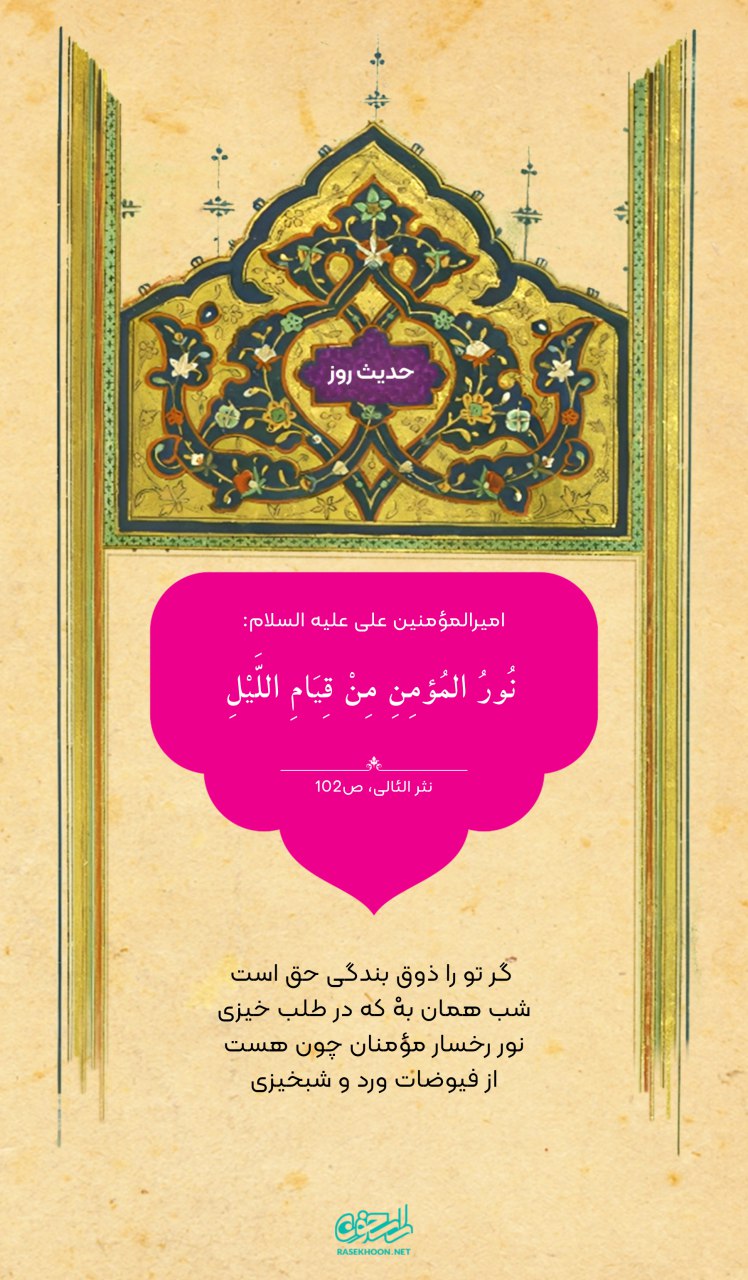 حدیث روز
امیرالمؤمنین علی علیه السلام:
نُورُ المُؤمِنِ مِنْ قِیَامِ اللَّیْلِ
نثر الئالی، ص102
گر تو را ذوق بندگی حق است
شب همان بهْ که در طلب خیزی
نور رخسار مؤمنان چون هست
از فیوضات ورد و شبخیزی
راسخون
RASEKHOON.NET